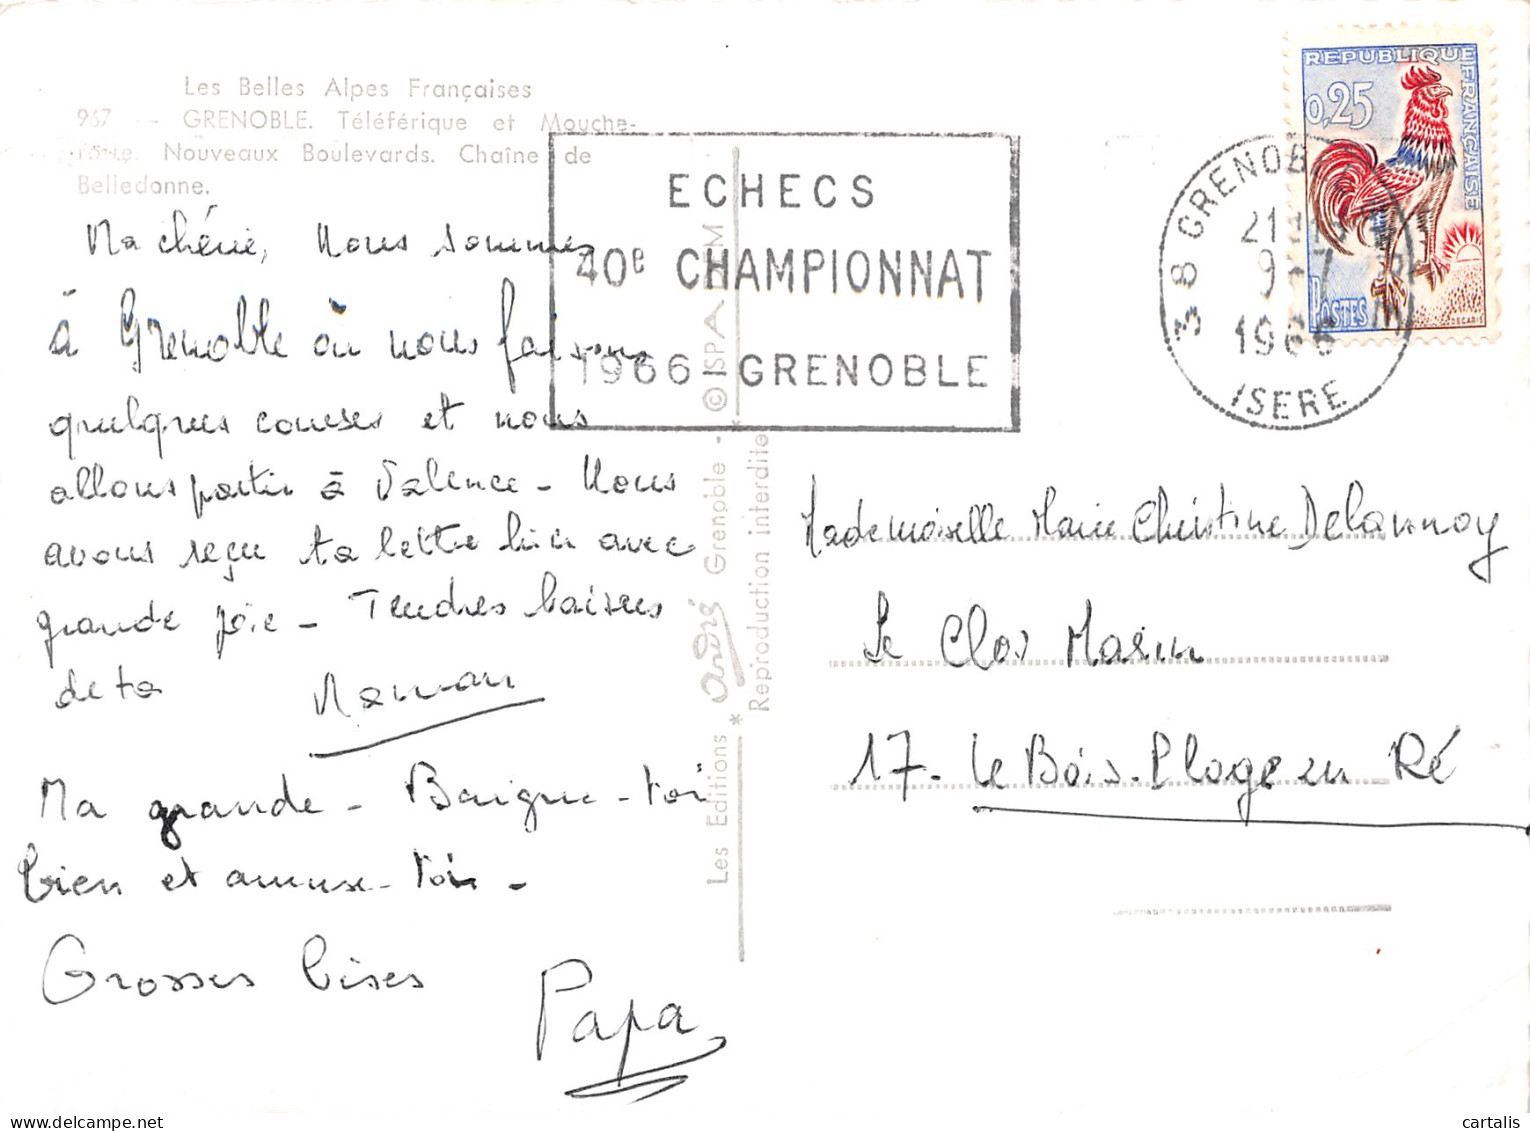 Les Belles Alpes Françaises
967 - GRENOBLE. Téléférique et Mouche-
rotte. Nouveaux Boulevards. Chaîne de
Belledonne.
Ma chérie, Nous sommes
à Grenoble où nous faisons
quelques courses et nous
allons partir à Valence - Nous
avons reçu ta lettre hier avec
grande joie - Tendres baisers
de ta Maman
Ma grande - Baigne-toi
bien et amuse-toi -
Grosses bises
Papa
ECHECS
40e CHAMPIONNAT
1966 GRENOBLE
Les Editions * André Grenoble - * © ISPA
Reproduction interdite
REPUBLIQUE FRANÇAISE
0,25
POSTES
DECARIS
38 GRENOBLE
9-7
1966
ISERE
Mademoiselle Marie Christine Delannoy
Le Clos Marin
17 - Le Bois-Plage en Ré
cartalis